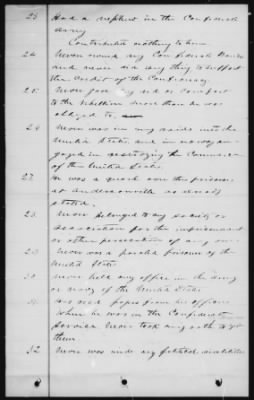 23 Had a nephew in the Confederate
Army
Contributed nothing to him
24. Never owned any Confederate Bonds
and never did any thing to support
the credit of the Confederacy.
25. Never gave any aid or comfort
to the rebellion more than he was
obliged to.
26 Never was in any raids into the
United States and in no way en-
gaged in destroying the Commerce
of the United States.
27. He was a guard over the prisoners
at Andersonville as already
stated.
28. Never belonged to any society or
association for the imprisonment
or other persecution of any one
29 Never was a paroled prisoner of the
United States
30 Never held any office in the army
or navy of the United States.
31. Received papers from his officers
when he was in the Confederate
Service Never took any oath to get
them.
32 Never was under any political disabilities